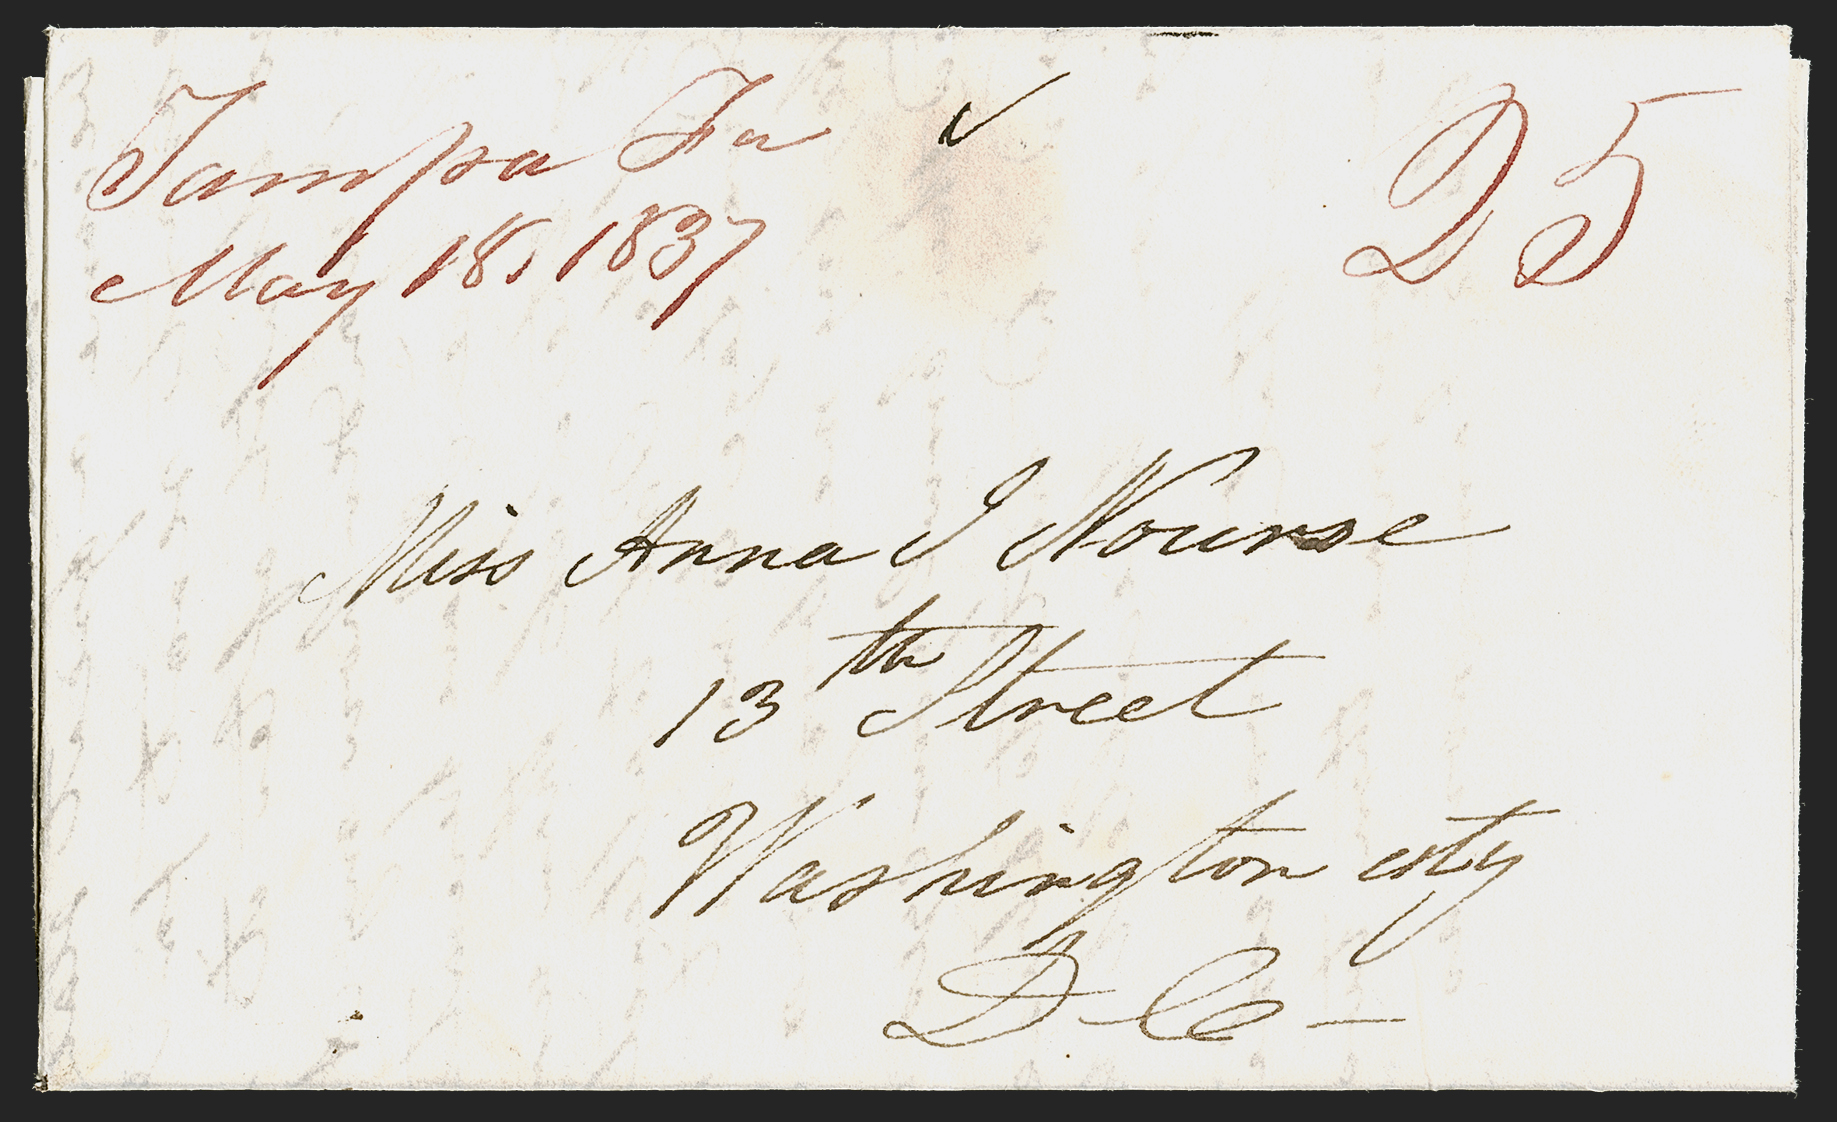 Tampa Fa
May 18, 1837
D 5
Miss Anna J Nourse
13th Street
Washington city
D C -